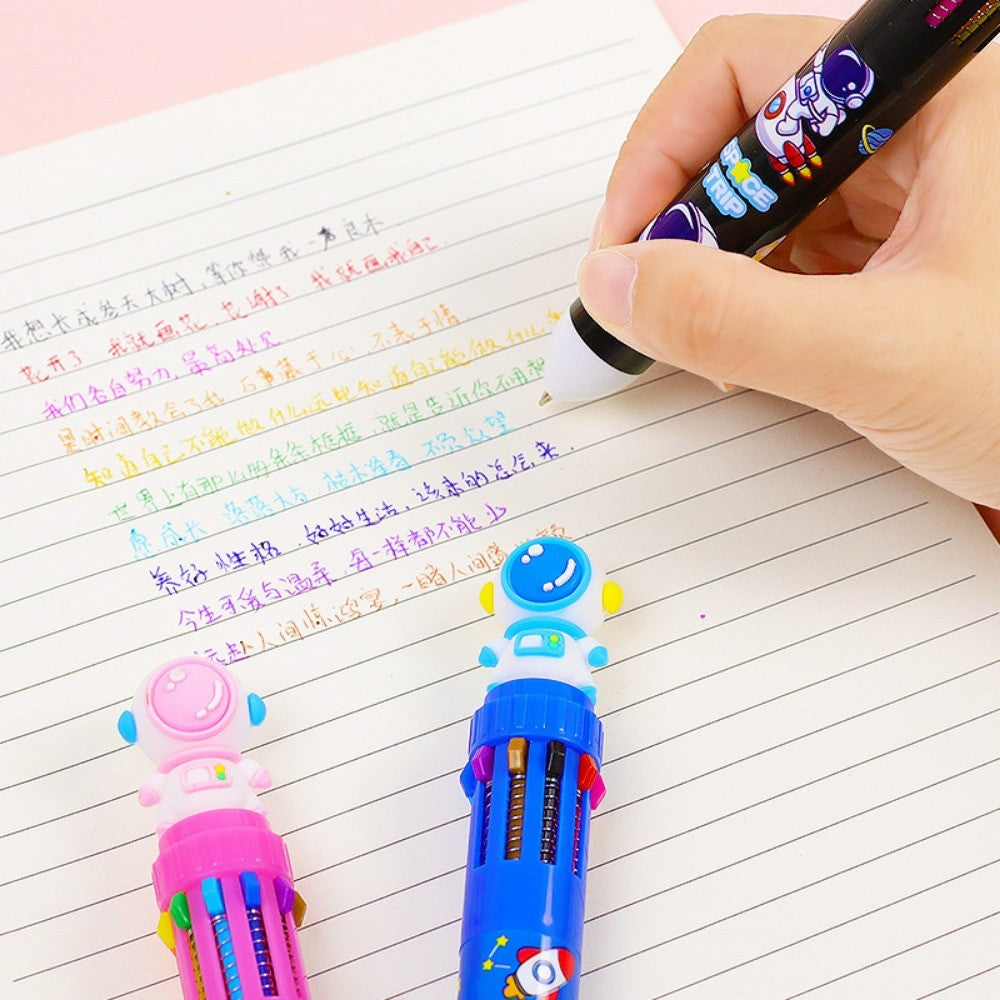 我想长成参天大树，等你懒我一声良木
花开了 我就画花，花谢了 我就画我自己
我们各自努力，最高处见
是时间教会了我 万事藏于心，不表于情
知道自己不能做什么远比知道自己能做什么
世界上有那么册条条框框，就是告诉你不用
愿成长 落落大方，枯木逢春 不负众望
养好性格，好好生活，该来的总会来．
今生可爱与温柔，每一样都不能少
人间惊鸿宴，一睹人间盛世颜
SPACE
TRIP